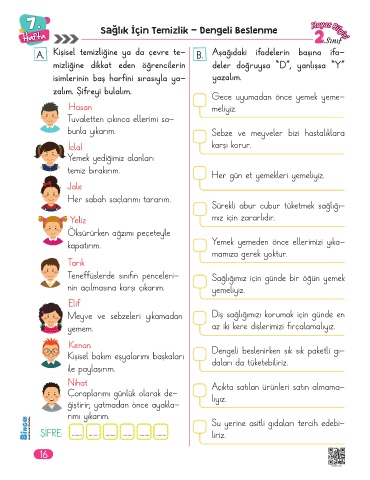 7.
Hafta
Sağlık İçin Temizlik – Dengeli Beslenme
Hayat Bilgisi
2.Sınıf
A. Kişisel temizliğine ya da çevre te-
mizliğine dikkat eden öğrencilerin
isimlerinin baş harfini sırasıyla ya-
zalım. Şifreyi bulalım.
Hasan
Tuvaletten çıkınca ellerimi sa-
bunla yıkarım.
İclal
Yemek yediğimiz alanları
temiz bırakırım.
Jale
Her sabah saçlarımı tararım.
Yeliz
Öksürürken ağzımı peçeteyle
kapatırım.
Tarık
Teneffüslerde sınıfın penceleri-
nin açılmasına karşı çıkarım.
Elif
Meyve ve sebzeleri yıkamadan
yemem.
Kenan
Kişisel bakım eşyalarımı başkaları
ile paylaşırım.
Nihat
Çoraplarımı günlük olarak de-
ğiştirir, yatmadan önce ayakla-
rımı yıkarım.
ŞİFRE:
16
B. Aşağıdaki ifadelerin başına ifa-
deler doğruysa "D", yanlışsa "Y"
yazalım.
Gece uyumadan önce yemek yeme-
meliyiz.
Sebze ve meyveler bizi hastalıklara
karşı korur.
Her gün et yemekleri yemeliyiz.
Sürekli abur cubur tüketmek sağlığı-
mız için zararlıdır.
Yemek yemeden önce ellerimizi yıka-
mamıza gerek yoktur.
Sağlığımız için günde bir öğün yemek
yemeliyiz.
Diş sağlığımızı korumak için günde en
az iki kere dişlerimizi fırçalamalıyız.
Dengeli beslenirken sık sık paketli gı-
daları da tüketebiliriz.
Açıkta satılan ürünleri satın almama-
lıyız.
Su yerine asitli gıdaları tercih edebi-
liriz.